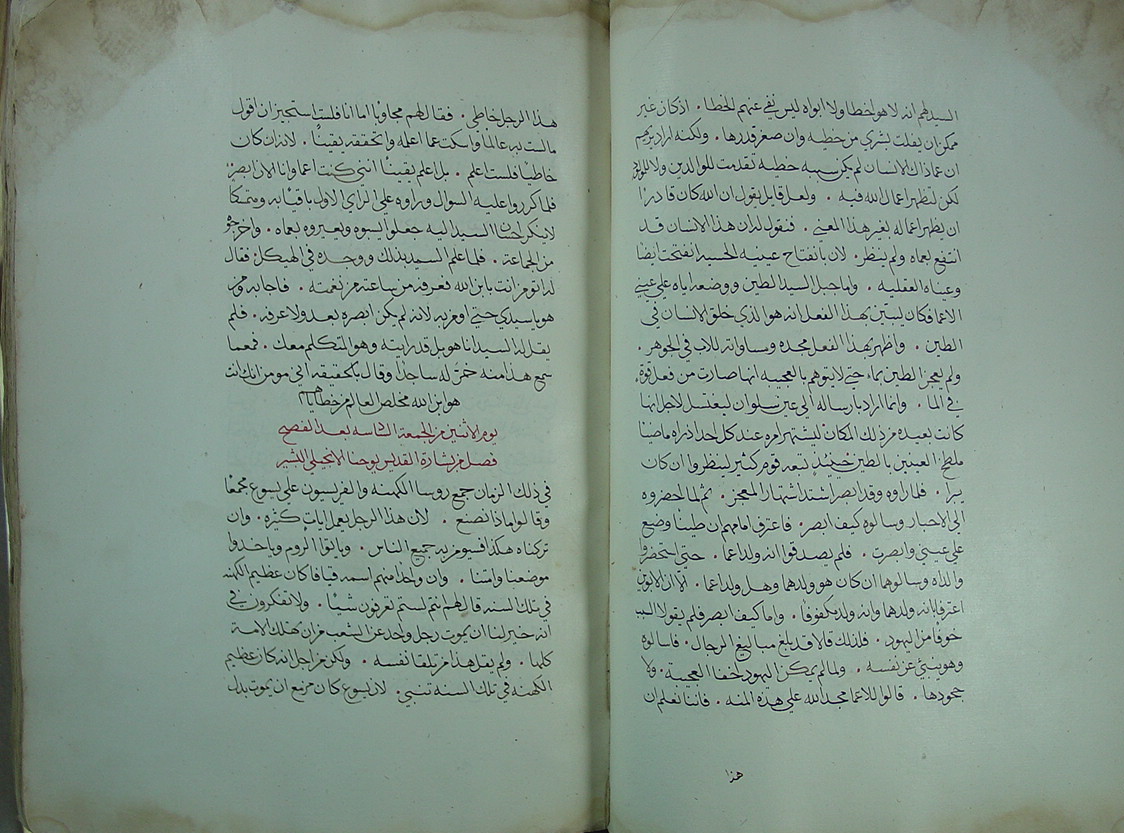 السيد لهم انه لا هو اخطا ولا ابواه ليس نفي عنهم الخطا . اذ كان غير
ممكن ان يفلت بشري من خطيه وان صغر قدرها . ولكنه اراد يريهم
ان عما ذاك الانسان لم يكن سببه خطيه تقدمت للوالدين ولا للولد
لكن لتظهر اعمال الله فيه . ولعل قايل يقول ان الله كان قادرا
ان يظهر اعماله لغير هذا المعني . فنقول له ان هذا الانسان قد
انتفع لعماه ولم ينضر . لان بانفتاح عينيه الحسيه انفتحت ايضا
وعيناه العقليه . واما جبل السيد الطين ووضعه اياه علي عيني
الاعما فكان ليبين بهذا الفعل انه هو الذي خلق الانسان في
الطين . واظهر بهذا الفعل مجده ومساواته للاب في الجوهر .
ولم يعجن الطين بماء حتي لا يتوهم بالعجيبه انها صارت من فعل قوة
في الما . وانما اراد بارساله الي عين سلوان ليغتسل لاجل انها
كانت بعيده من ذلك المكان ليشتهر امره عند كل احد اذ راه ماضيا
ملطخ العينين بالطين حينيذ تبعه قوم كثير لينظروا ان كان
يبرا . فلما راوه وقد ابصر اشتد اشتهار المعجز . ثم لما احضروه
الي الاحبار وسالوه كيف ابصر . فاعترف امامهم ان طينا وضع
علي عيني وابصرت . فلم يصدقوا انه ولد اعما . حتي استحضروا
والداه وسالوهما ان كان هو ولدهما وهل ولد اعما . الا ان الابوين
اعترفا بانه ولدهما وانه ولد مكفوفا . واما كيف ابصر فلم يقولا السبب
خوفا من اليهود . فلذلك قالا قد بلغ مبالغ الرجال . فاسالوه
وهو ينبي عن نفسه . ولما لم يمكن اليهود لخفا العجيبة . ولا
جحودها . قالوا للاعما مجد الله علي هذه المنه . فاننا نعلم ان
هذا
هذا الرجل خاطي . فقال لهم مجاوبا اما انا فلستا ستجيز ان اقول
ما لست به عالما واسكت عما اعلمه واتحققه يقينا . لانه ان كان
خاطيا فلست اعلم . بل اعلم يقينا انني كنت اعما وانا الان ابصر
فلما كرروا عليه السوال وراوه علي الراي الاول باقيا به ومتمسكا
لا ينكر احسان السيد اليه جعلوا يسبوه ويعيروه لعماه . واخرجوه
من الجماعة . فلما علم السيد بذلك ووجده في الهيكل فقال
له اتومن انت بابن الله فعرفه من ساعته من نغمته . فاجابه من
هو يا سيدي حتي اومن به لانه لم يكن ابصره بعد ولا عرفه . فلم
يقل له السيد انا هو بل قد رايته وهو المتكلم معك . فمعما
سمع هذا منه خر له ساجدا وقال بالحقيقه اني مومن انك انت
هو ابن الله مخلص العالم من خطاياهم
يوم الاثنين من الجمعة السادسه بعد الفصح
فصل من بشارة القديس يوحنا الانجيلي البشير
في ذلك الزمان جمع روسا الكهنه والفريسيون علي يسوع مجمعا
وقالوا ماذا نصنع . لان هذا الرجل يعمل ايات كثيره . وان
تركناه هكذا فسيومن به جميع الناس . وياتوا الروم وياخذوا
موضعنا وامتنا . وان واحدا منهم اسمه قيافا كان عظيم الكهنه
في تلك السنه قال لهم انتم لستم تعرفون شيا . ولا تفكرون في
انه خير لنا ان يموت رجل واحد عن الشعب من ان تهلك الامة
كلها . ولم يقل هذا من تلقا نفسه . ولكن من اجل انه كان عظيم
الكهنه في تلك السنه تنبي . لان يسوع كان مزمع ان يموت بدل